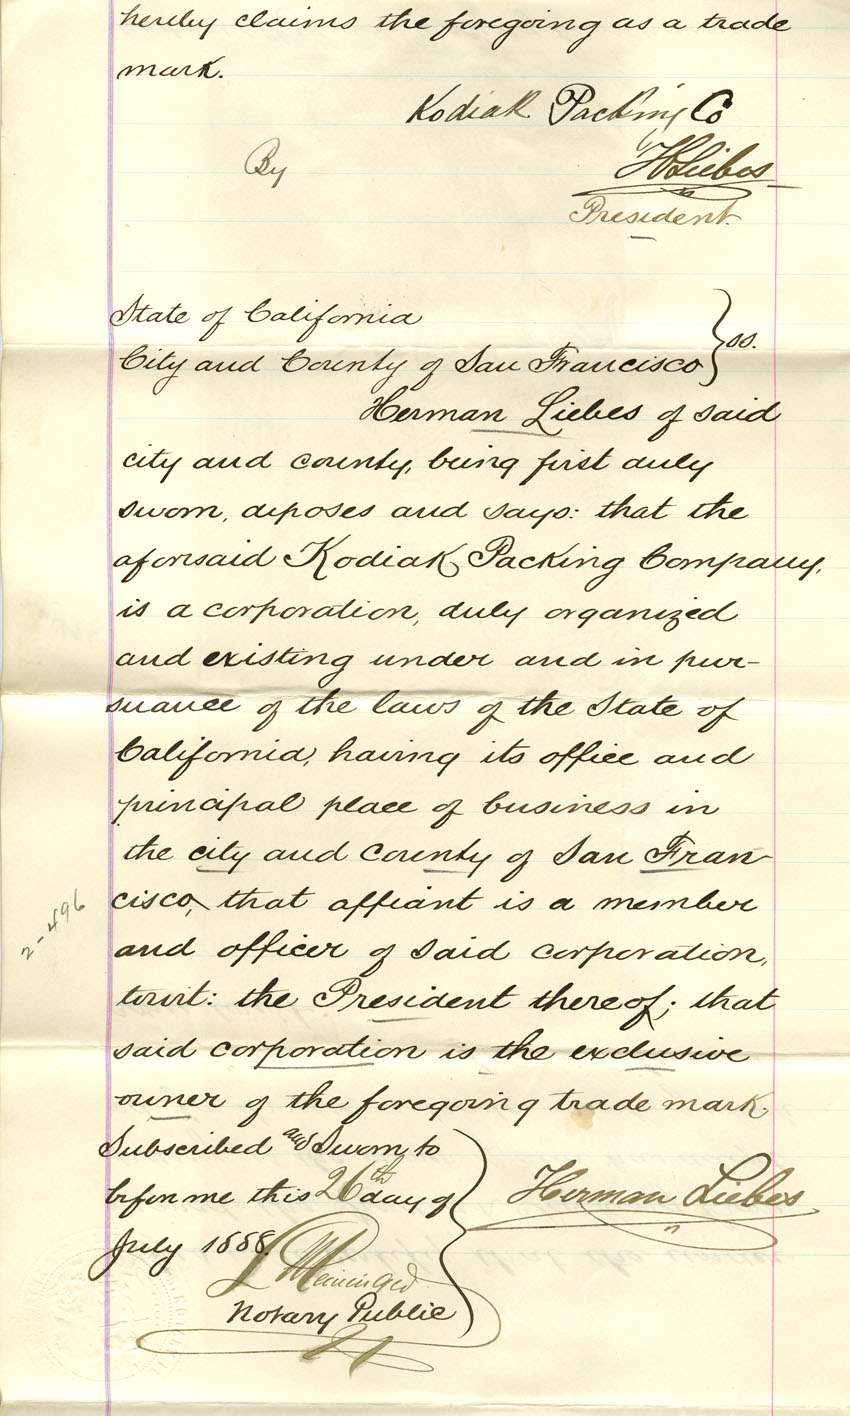 hereby claims the foregoing as a trade
mark.
Kodiak Packing Co
By H Liebes
President.
State of California
City and County of San Francisco } ss.
Herman Liebes of said
city and county, being first duly
sworn, deposes and says: that the
aforesaid Kodiak Packing Company,
is a corporation, duly organized
and existing under and in pur-
suance of the laws of the State of
California, having its office and
principal place of business in
the city and county of San Fran-
cisco, that affiant is a member
and officer of said corporation,
towit: the President thereof; that
said corporation is the exclusive
owner of the foregoing trade mark.
Subscribed and Sworn to
before me this 26th day of
July 1888.
Herman Liebes
Notary Public
2-496